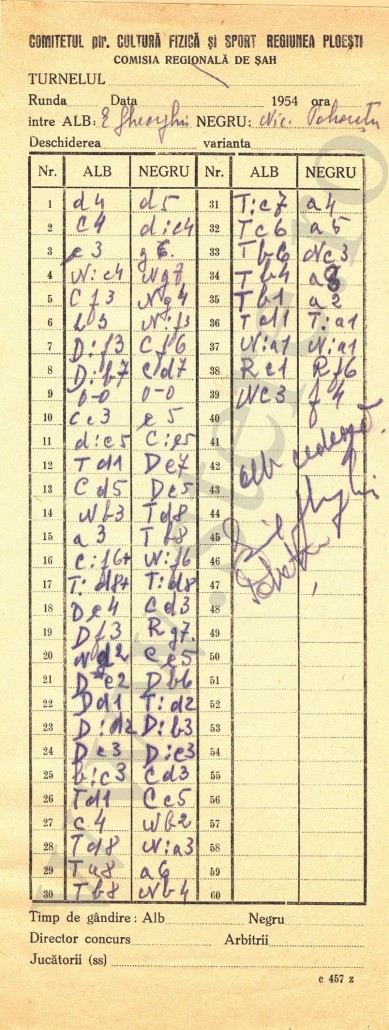 COMITETUL ptr. CULTURĂ FIZICĂ și SPORT REGIUNEA PLOEȘTI
COMISIA REGIONALĂ DE ȘAH
TURNELUL
Runda Data 1954 ora
intre ALB: E Gheorghiu NEGRU: Nic.
Deschiderea varianta
Nr. ALB NEGRU Nr. ALB NEGRU
1 d4 d5 31 T:c7 a4
2 c4 d:c4 32 Tc6 a5
3 e3 g6 33 Tb6 Nc3
4 N:c4 Ng7 34 Tb4 a3
5 Cf3 Ng4 35 Tb1 a2
6 N:f3 36 Td1 T:a1
7 D:f3 Cf6 37 N:a1 N:a1
8 D:b7 Cd7 38 Re1 Rf6
9 0-0 0-0 39 Nc3 f4
10 Cc3 e5 40
11 d:e5 C:e5 41
12 Td1 De7 42 alb cedează.
13 Cd5 De5 43
14 Nb3 Td8 44
15 a3 Tb8 45
16 C:f6+ N:f6 46
17 T:d8+ T:d8 47
18 De4 Cd3 48
19 Df3 Rg7 49
20 Nd2 Ce5 50
21 De2 Db6 51
22 Dd1 T:d2 52
23 D:d2 D:b3 53
24 Dc3 D:c3 54
25 b:c3 Cd3 55
26 Td1 Cc5 56
27 c4 Nb2 57
28 Td8 N:a3 58
29 Ta8 a6 59
30 Tb8 Nb4 60
Timp de gândire: Alb Negru
Director concurs Arbitrii
Jucătorii (ss)
c 457 z